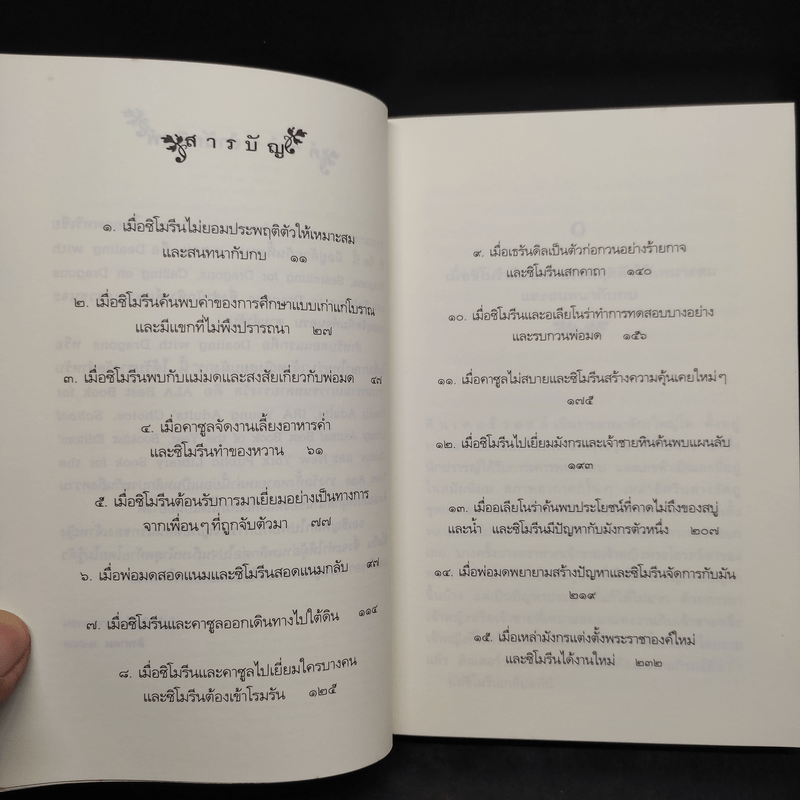 สารบัญ
๑. เมื่อซิโมรีนไม่ยอมประพฤติตัวให้เหมาะสม
และสนทนากับกบ ๑๑
๒. เมื่อซิโมรีนค้นพบค่าของการศึกษาแบบเก่าแก่โบราณ
และมีแขกที่ไม่พึงปรารถนา ๒๗
๓. เมื่อซิโมรีนพบกับแม่มดและสงสัยเกี่ยวกับพ่อมด ๔๗
๔. เมื่อคาซูลจัดงานเลี้ยงอาหารค่ำ
และซิโมรีนทำของหวาน ๖๑
๕. เมื่อซิโมรีนต้อนรับการมาเยี่ยมอย่างเป็นทางการ
จากเพื่อนๆ ที่ถูกจับตัวมา ๗๗
๖. เมื่อพ่อมดสอดแนมและซิโมรีนสอดแนมกลับ ๙๗
๗. เมื่อซิโมรีนและคาซูลออกเดินทางไปใต้ดิน ๑๑๔
๘. เมื่อซิโมรีนและคาซูลไปเยี่ยมใครบางคน
และซิโมรีนต้องเข้าโรมรัน ๑๒๕
๙. เมื่อเธรันดิลเป็นตัวก่อกวนอย่างร้ายกาจ
และซิโมรีนเสกคาถา ๑๔๐
๑๐. เมื่อซิโมรีนและอเลียโนร่าทำการทดสอบบางอย่าง
และรบกวนพ่อมด ๑๕๖
๑๑. เมื่อคาซูลไม่สบายและซิโมรีนสร้างความคุ้นเคยใหม่ๆ
๑๗๕
๑๒. เมื่อซิโมรีนไปเยี่ยมมังกรและเจ้าชายหินค้นพบแผนลับ
๑๙๓
๑๓. เมื่ออเลียโนร่าค้นพบประโยชน์ที่คาดไม่ถึงของสบู่
และน้ำ และซิโมรีนมีปัญหากับมังกรตัวหนึ่ง ๒๐๗
๑๔. เมื่อพ่อมดพยายามสร้างปัญหาและซิโมรีนจัดการกับมัน
๒๑๙
๑๕. เมื่อเหล่ามังกรแต่งตั้งพระราชาองค์ใหม่
และซิโมรีนได้งานใหม่ ๒๓๒